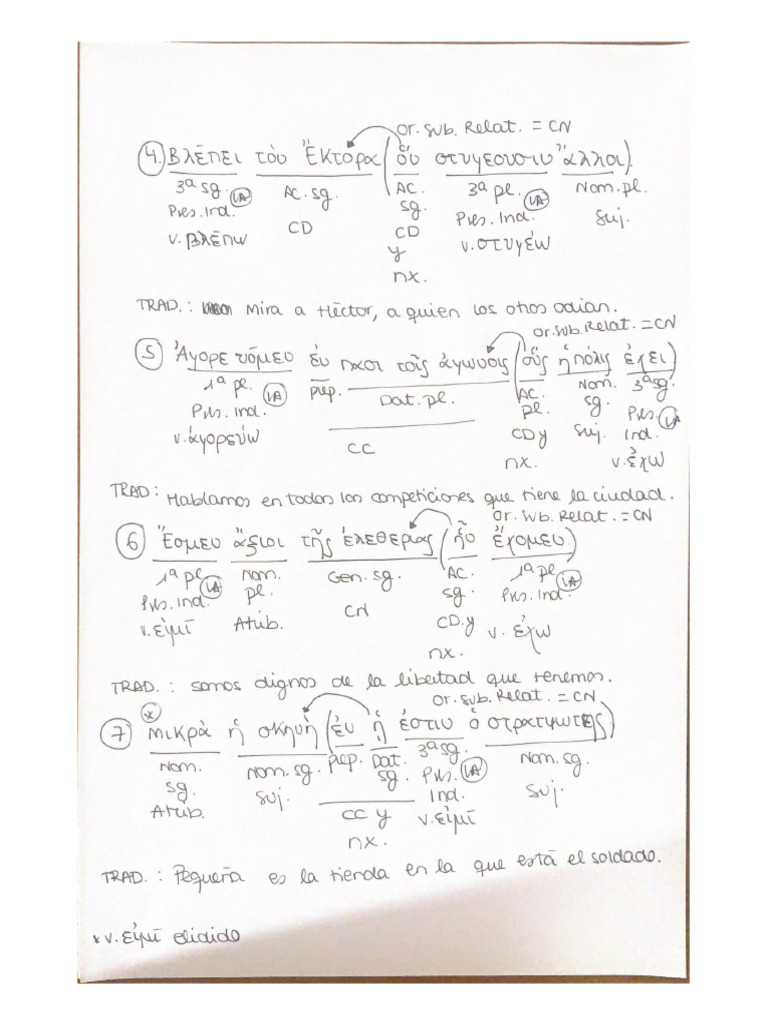 or. sub. Relat. = CN
4. Βλέπει τὸν Ἕκτορα (ὃν στυγεουσιν ἄλλοι).
3ª sg. VA Ac. sg. Ac. 3ª pl. VA Nom. pl.
Pres. Ind. CD sg. Pres. Ind. suj.
v. βλέπω CD v. στυγέω
y
nx.
TRAD.: Mira a Héctor, a quien los otros odian.
or. sub. Relat. = CN
5 Ἀγορευόμεν ἐν πασι τοῖς ἀγωσις (οὓς ἡ πόλις ἐχει)
1ª pl. VA prep. Dat. pl. Ac. Nom. 3ª sg.
Pres. Ind. pl. sg. Pres. VA
v. ἀγορεύω CC CD y suj. Ind.
nx. v. ἐχω
TRAD: Hablamos en todos los competiciones que tiene la ciudad.
or. sub. Relat. = CN
6 Ἔσμεν ἄξιοι τῆς ἐλεθεριας (ἣν ἔχομεν.)
1ª pl VA Nom. Gen. sg. Ac. 1ª pl VA
Pres. Ind. pl. CN sg. Pres. Ind.
v. εἰμί Atrib. CD. y v. ἐχω
nx.
TRAD.: somos dignos de la libertad que tenemos.
or. sub. Relat. = CN
7 * μικρὰ ἡ σκηνὴ (ἐν ᾗ ἐστιν ὁ στρατιωτης)
Nom. Nom. sg. prep. Dat. 3ª sg. Nom. sg.
sg. suj. sg. Pres. VA suj.
Atrib. CC y Ind.
nx. v. εἰμί
TRAD.: Pequeña es la tienda en la que está el soldado.
* v. εἰμί elidido